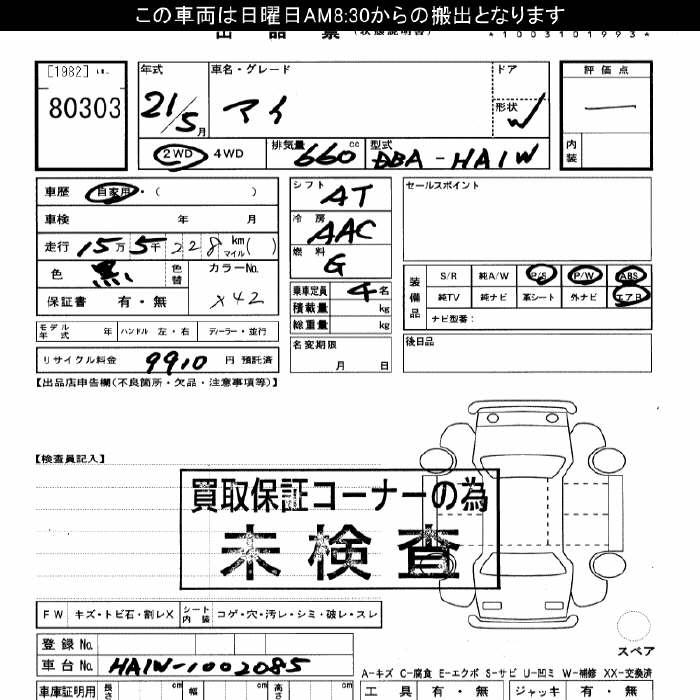 この車両は日曜日AM8:30からの搬出となります
出品票(状態説明書)
*1003101993*
[1982]
80303
年式 21/5月
車名・グレード アイ
ドア
形状 W
評価点 —
内装
2WD 4WD
排気量 660cc
型式 DBA-HA1W
車歴 自家用・( )
車検 年 月
走行 15万5千228km マイル( )
色 黒 色替
カラーNo. X42
保証書 有・無
シフト AT
冷房 AAC
燃料 G
乗車定員 4名
積載量 kg
総重量 kg
セールスポイント
装備品 S/R 純A/W P/S P/W ABS
純TV 純ナビ 革シート 外ナビ エアB
ナビ型番:
モデル年式 年 ハンドル 左・右 ディーラー・並行
リサイクル料金 9910 円 預託済
名変期限 月 日
後日品
【出品店申告欄(不良箇所・欠品・注意事項等)】
【検査員記入】
買取保証コーナーの為
未検査
FW キズ・トビ石・割レX シート内装 コゲ・穴・汚レ・シミ・破レ・スレ
登録No.
車台No. HA1W-1002085
スペア
A-キズ C-腐食 E-エクボ S-サビ U-凹ミ W-補修 XX-交換済
車庫証明用 長さ cm 幅 cm 高さ cm
工具 有・無 ジャッキ 有・無